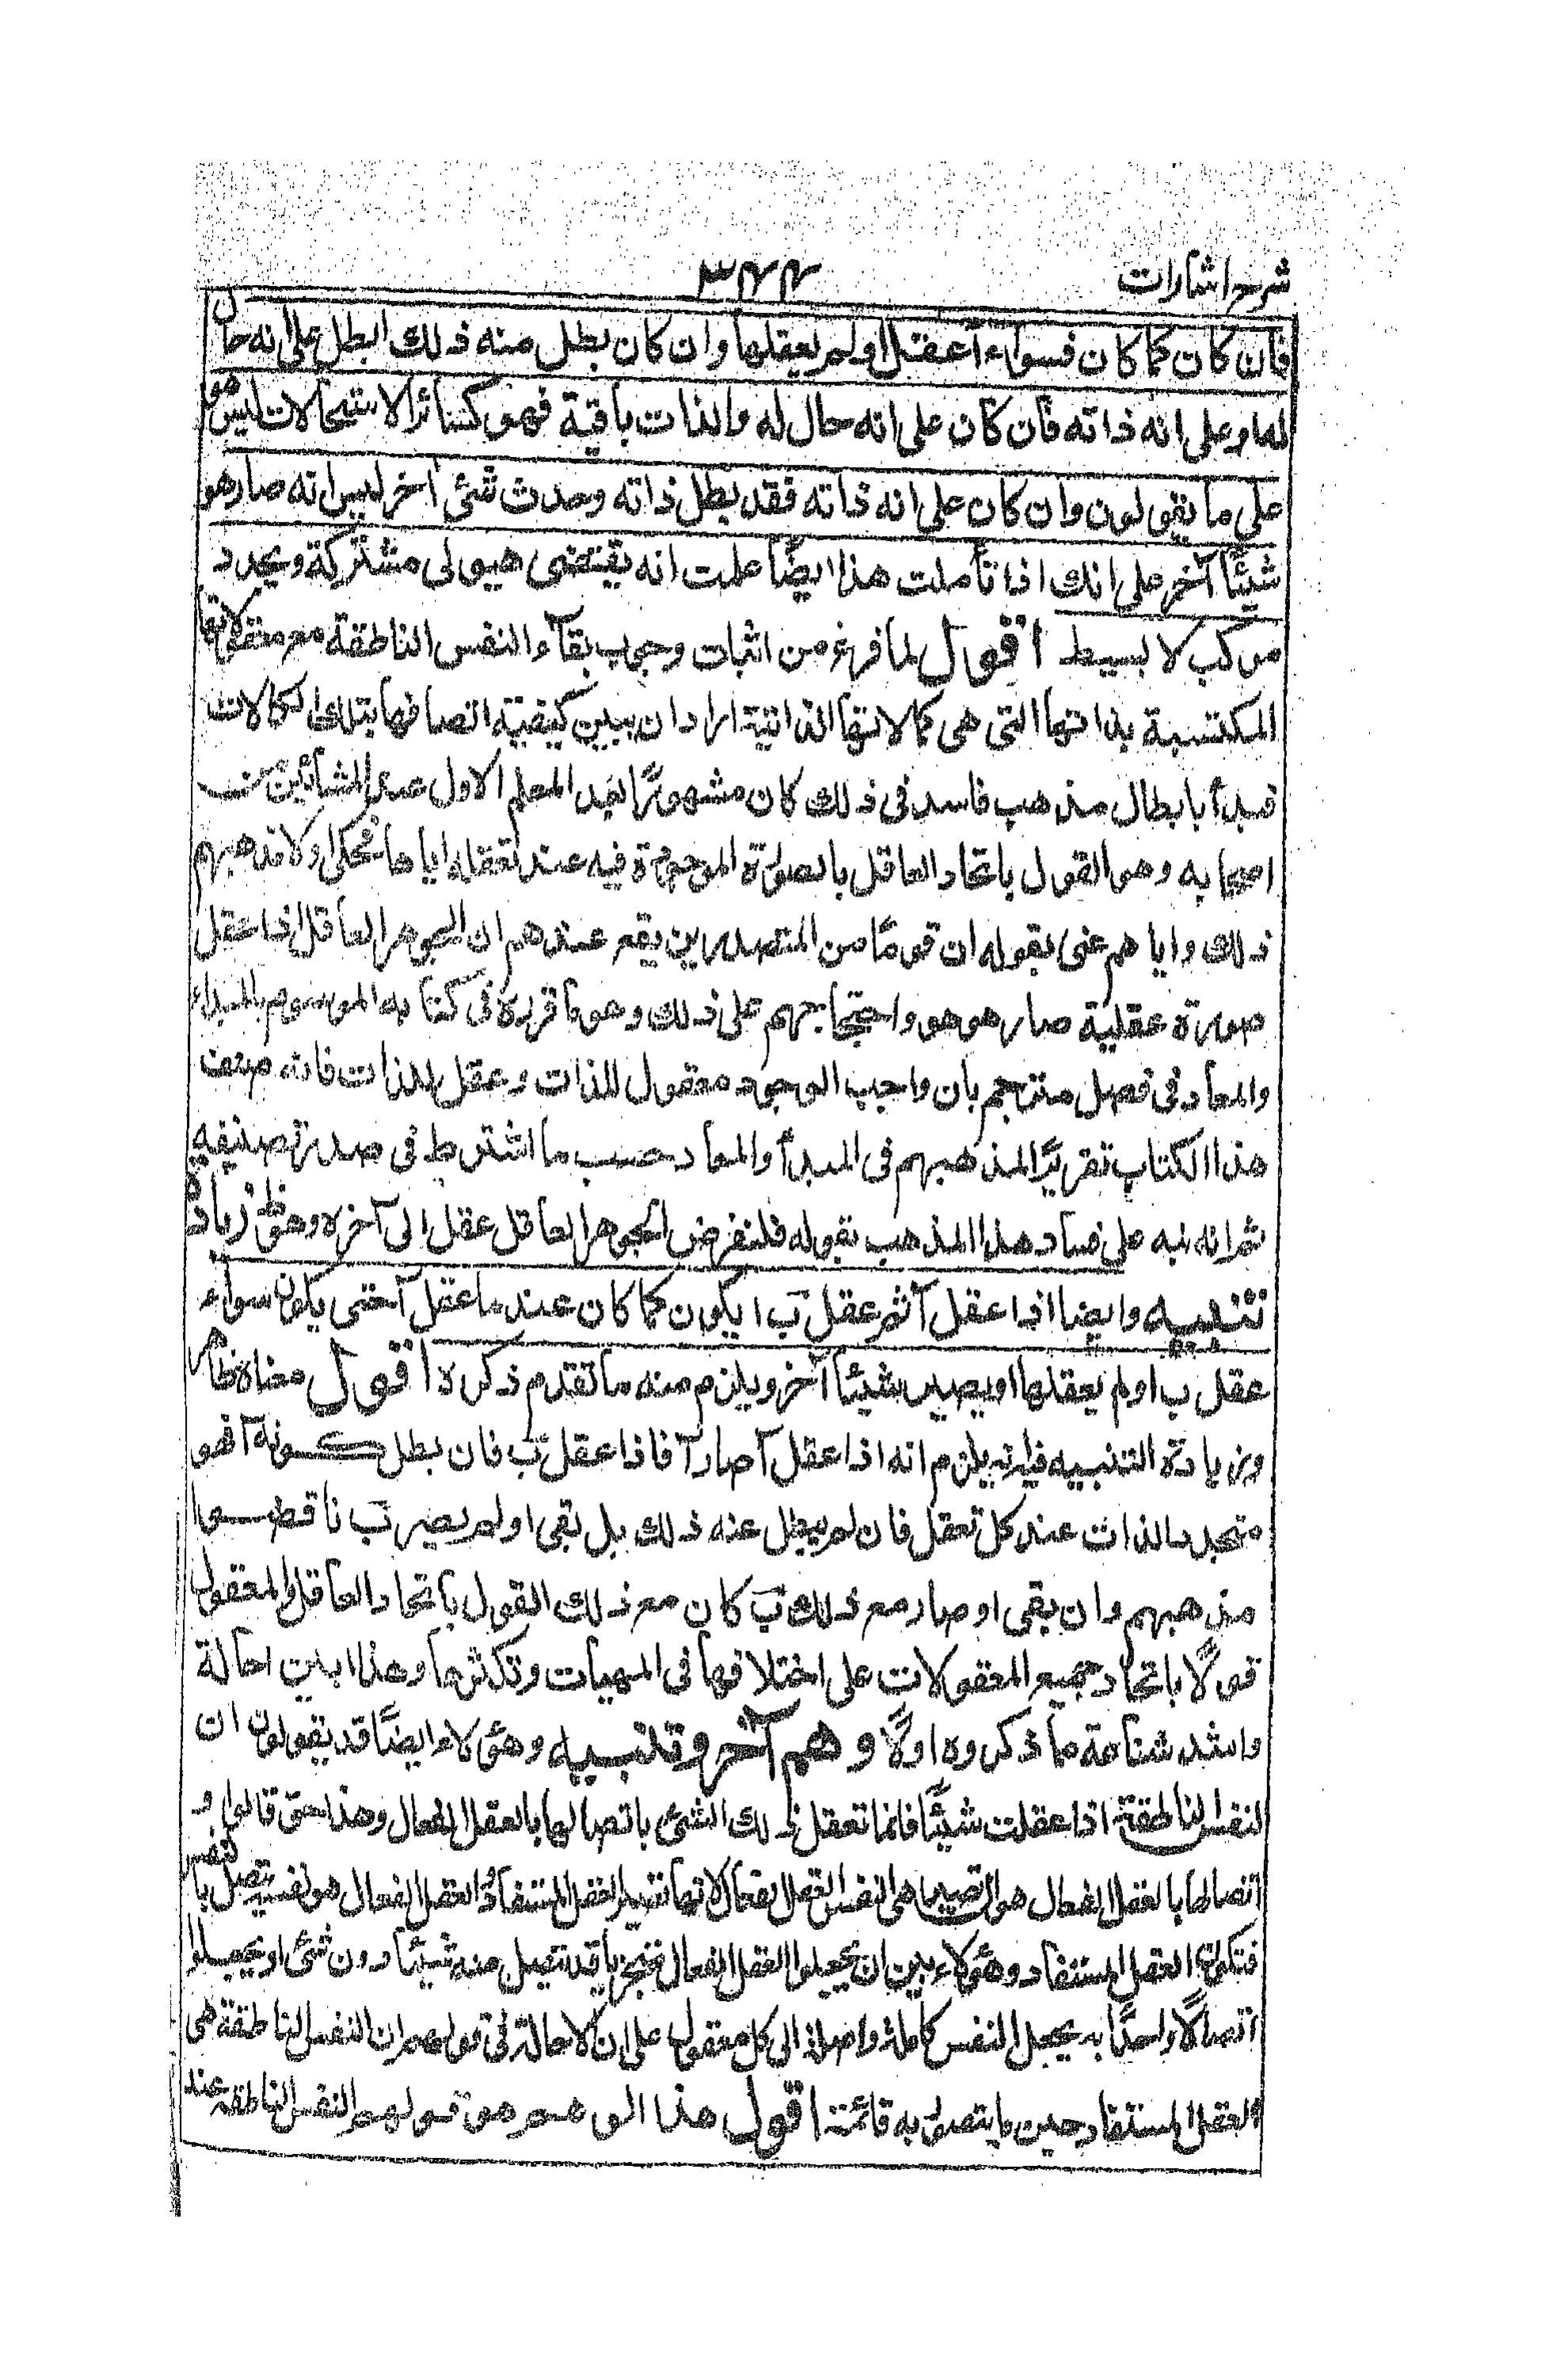 شرح اشارات ٣٤٤
فان كان كما كان فسواء أعقل ا ولم يعقلها وان كان بطل منه ذلك ابطل على انه حال
له او على انه ذاته فان كان على انه حال له والذات باقية فهو كسائر الاستحالات ليس هو
على ما يقولون وان كان على انه ذاته فقد بطل ذاته وحدث شئ آخر ليس انه صار هو
شيئًا آخر على انك اذا تأملت هذا ايضًا علمت انه يقتضى هيولى مشتركة وتجدد
مركب لا بسيط اقول لما فرغ من اثبات وجوب بقاء النفس الناطقة مع معقولاتها
المكتسبة بذاتها التى هى كمالاتها الذاتية اراد ان يبين كيفية اتصافها بتلك الكمالات
فبدأ بابطال مذهب فاسد فى ذلك كان مشهورًا بعد المعلم الاول عند المشائين من
اصحابه وهو القول باتحاد العاقل بالصورة الموجودة فيه عند تعقله اياها فحكى اولا مذهبهم
ذلك واياهم عنى بقوله ان قومًا من المتصدرين يقع عندهم ان الجوهر العاقل اذا عقل
صورة عقلية صار هو هو واحتجاجهم على ذلك وهو ما قرره فى كتابه الموسوم بالمبداء
والمعاد فى فصل مترجم بان واجب الوجود معقول الذات وعقل الذات فانه صنف
هذا الكتاب تقريرًا لمذهبهم فى المبدأ والمعاد حسب ما اشترط فى صدر تصنيفه
ثم انه نبه على فساد هذا المذهب بقوله فلنفرض الجوهر العاقل عقل الى آخره وهو ظ زيادة
تنبيه وايضا اذا عقل آ ثم عقل ب ايكون كما كان عند ما عقل آ حتى يكون سواء
عقل ب اولم يعقلها او يصير شيئًا آخر ويلزم منه ما تقدم ذكره اقول معناه ظاهر
وزيادة التنبيه فيه انه يلزم انه اذا عقل آ صار آ فاذا عقل ب فان بطل كونه آ فهو
متجدد الذات عند كل تعقل فان لم يبطل عنه ذلك بل بقى اولم يصر ب ناقضوا
مذهبهم وان بقى ا وصار مع ذلك ب كان مع ذلك القول باتحاد العاقل والمعقول
قولًا باتحاد جميع المعقولات على اختلافها فى المهيات وتكثرها وهذا ابين احالة
واشد شناعة مما ذكروه اولًا وهم آخر وتنبيه وهؤلاء ايضًا قد يقولون ان
النفس الناطقة اذا عقلت شيئًا فانما تعقل ذلك الشئ باتصالها بالعقل الفعال وهذا حق قالوا و
اتصالها بالعقل الفعال هو ان تصير هى نفس العقل الفعال لانها تصير العقل المستفاد والعقل الفعال هو نفسه يتصل بالنفس
فتكون العقل المستفاد وهؤلاء بين ان يجعلوا العقل الفعال متجزيا قد تتصل منه شيئًا دون شئ او يجعلوا
اتصالًا واحدًا به يجعل النفس كاملة واصلة الى كل معقول على ان الاحالة فى قولهم ان النفس الناطقة هى
العقل المستفاد حين ما يتصور به قائمة اقول هذا الوهم هو قولهم النفس الناطقة عند